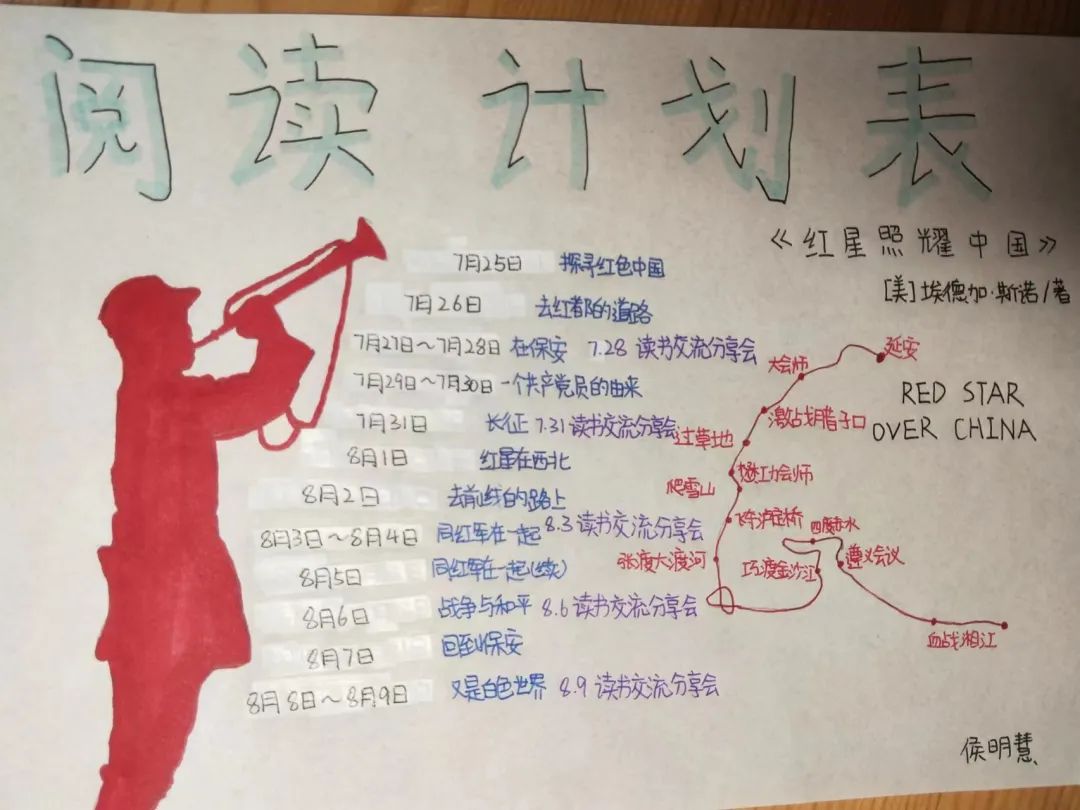 阅读计划表
《红星照耀中国》
[美]埃德加·斯诺/著
RED STAR
OVER CHINA
7月25日 探寻红色中国
7月26日 去红都的道路
7月27日~7月28日 在保安 7.28 读书交流分享会
7月29日~7月30日 一个共产党员的由来
7月31日 长征 7.31 读书交流分享会
8月1日 红星在西北
8月2日 去前线的路上
8月3日~8月4日 同红军在一起 8.3 读书交流分享会
8月5日 同红军在一起(续)
8月6日 战争与和平 8.6 读书交流分享会
8月7日 回到保安
8月8日~8月9日 又是白色世界 8.9 读书交流分享会
延安
大会师
激战腊子口
过草地
懋功会师
爬雪山
飞夺泸定桥
四渡赤水
强渡大渡河
巧渡金沙江
遵义会议
血战湘江
侯明慧